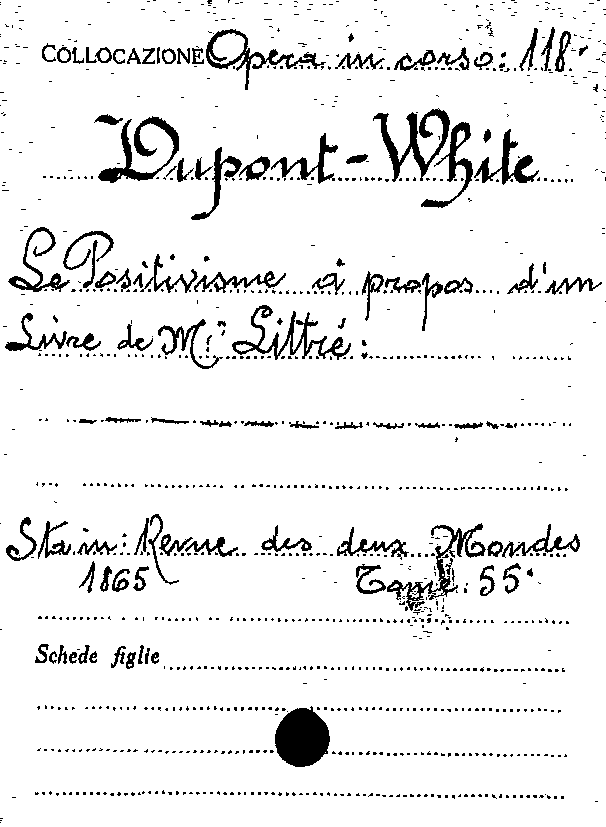 COLLOCAZIONE Opera in corso: 118.
Dupont-White
Le Positivisme à propos d'un
Livre de Mr Littré:
Sta in: Revue des deux Mondes
1865 Tome: 55.
Schede figlie